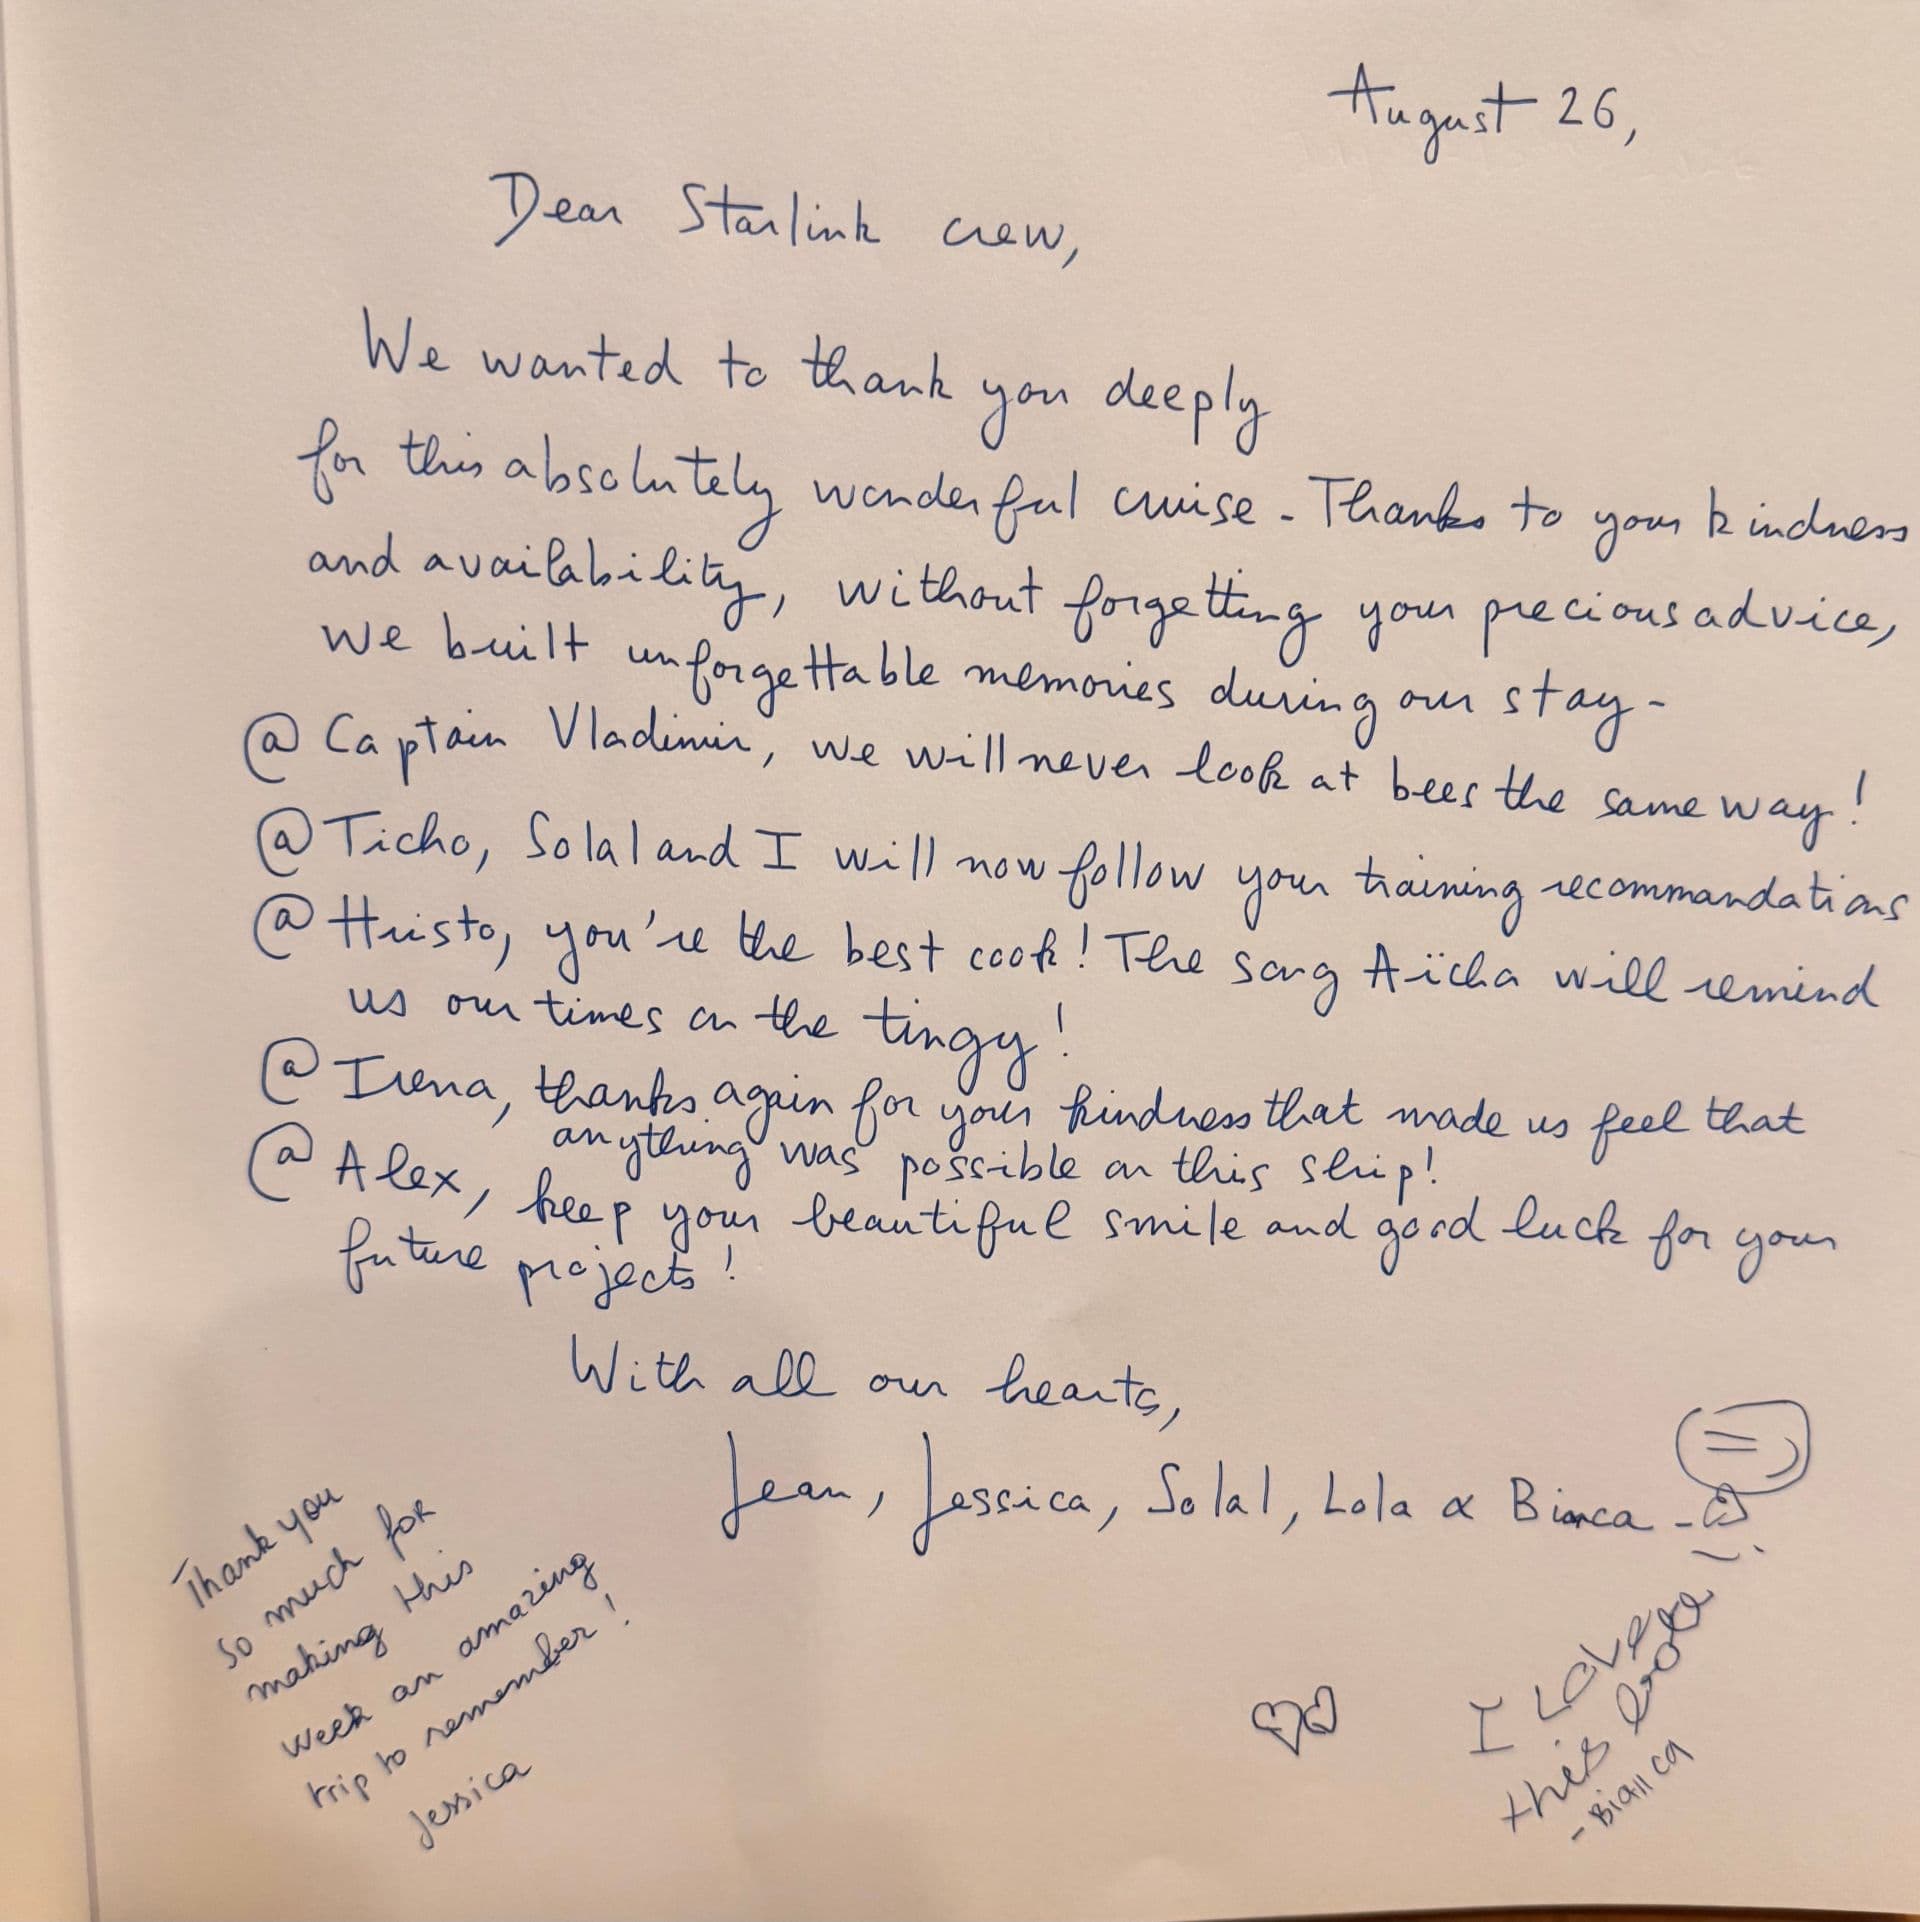 August 26,
Dear Starlink crew,
We wanted to thank you deeply
for this absolutely wonderful cruise - Thanks to your kindness
and availability, without forgetting your precious advice,
we built unforgettable memories during our stay -
@ Captain Vladimir, we will never look at bees the same way!
@ Ticho, Solal and I will now follow your training recommandations
@ Hristo, you're the best cook! The song Aïcha will remind
us our times on the tingy!
@ Irena, thanks again for your kindness that made us feel that
anything was possible on this ship!
@ Alex, keep your beautiful smile and good luck for your
future projects!
With all our hearts,
Jean, Jessica, Solal, Lola & Bianca -
Thank you
so much for
making this
week an amazing
trip to remember!
Jessica
I LOVE
this boat
- Biança